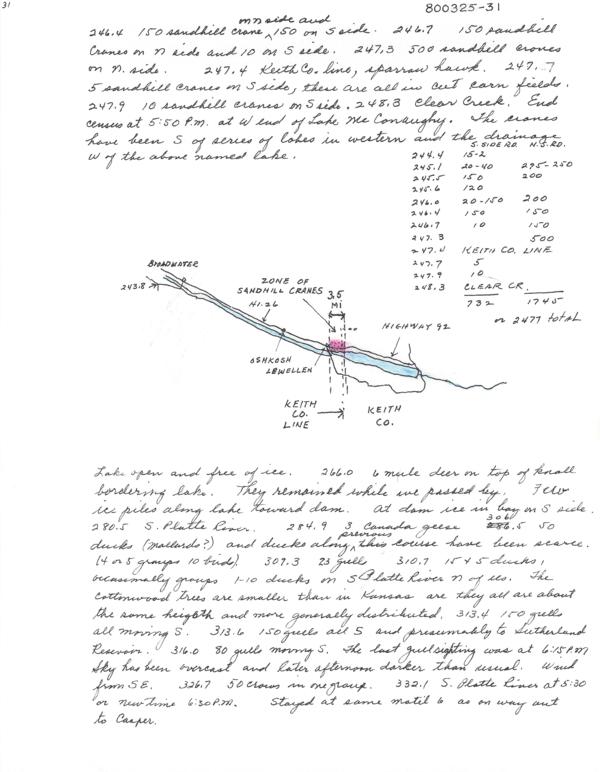 31
800325-31
on N side and
246.4 150 sandhill crane ^ 150 on S side. 246.7 150 sandhill
Cranes on N side and 10 on S side. 247.3 500 sandhill cranes
on N. side. 247.4 Keith Co. line, sparrow hawk. 247.7
5 sandhill cranes on S side, these are all in cut corn fields.
247.9 10 sandhill cranes on S side. 248.3 Clear Creek. End
census at 5:50 P.M. at W end of Lake Mc Conaughy. The cranes
have been S of series of lakes in western and the drainage
W of the above named lake.
S. SIDE RD. N.S. RD.
244.4 15-2
245.1 20-40 295-250
245.5 150 200
245.6 120
246.0 20-150 200
246.4 150 150
246.7 10 150
247.3 500
247.4 KEITH CO. LINE
247.7 5
247.9 10
248.3 CLEAR CR.
732 1745
or 2477 total
BROADWATER
243.8
ZONE OF
SANDHILL CRANES
3.5
MI
HI. 26
HIGHWAY 92
OSHKOSH
LEWELLEN
KEITH
CO.
LINE
KEITH
CO.
Lake open and free of ice. 266.0 6 mule deer on top of knoll
bordering lake. They remained while we passed by. Few
ice piles along lake toward dam. At dam ice in bay on S side.
280.5 S. Platte River. 284.9 3 Canada geese 306.5 50
ducks (mallards?) and ducks along ^ previous this course have been scarce.
(4 or 5 groups 10 birds) 307.3 23 gulls 310.7 15 + 5 ducks,
occasionally groups 1-10 ducks on S Platte River N of us. The
Cottonwood trees are smaller than in Kansas are they all are about
the same heigth and more generally distributed. 313.4 150 gulls
all moving S. 313.6 150 gulls all S and presumably to Sutherland
Resevoir. 316.0 80 gulls moving S. The last gull sighting was at 6:15 P.M
Sky has been overcast and later afternoon darker than usual. Wind
from SE. 326.7 50 crows in one group. 332.1 S. Platte River at 5:30
or new time 6:30 P.M. Stayed at same motel 6 as on way out
to Casper.